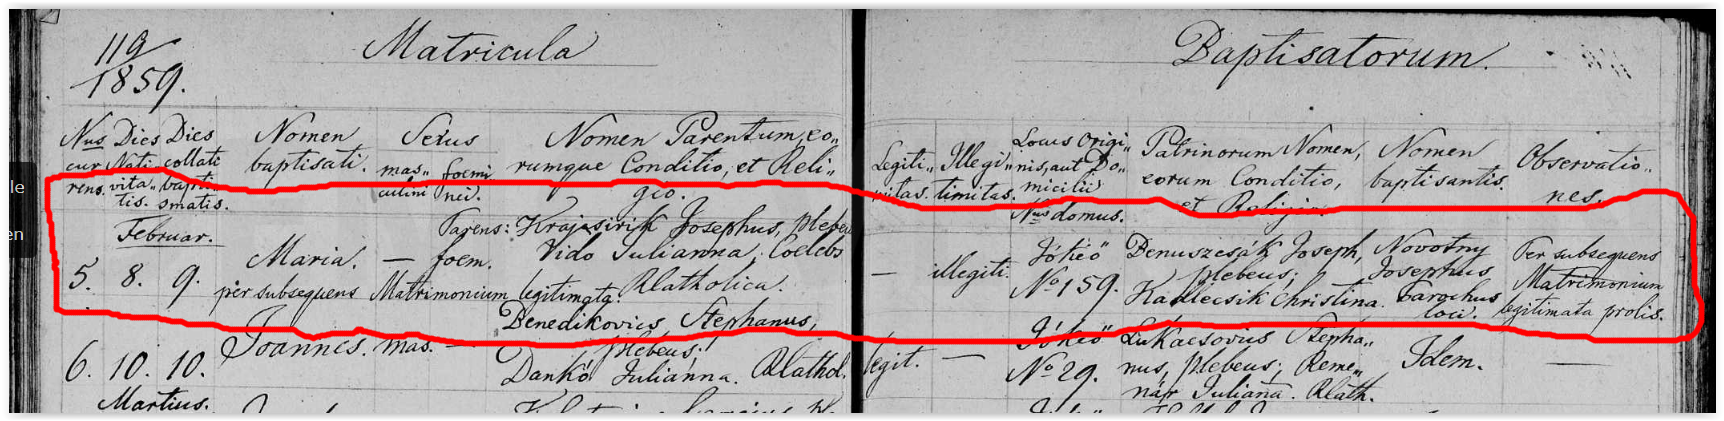 119
1859.
Matricula
Baptisatorum.
Nus cur rens.
Dies Nati vita- tis.
Dies collati bapti- smatis.
Nomen baptisati.
Sexus
mas- culini
foemi nei.
Nomen Parentum, eo- rumque Conditio, et Reli- gio.
Legiti- mitas.
Illegi- timitas.
Locus Origi- nis, aut Do- micilii
Nus domus.
Patrinorum Nomen, eorum Conditio, et Religio.
Nomen baptisantis.
Observatio- nes.
Februar.
5. 8. 9.
Maria.
— foem.
per subsequens Matrimonium legitimata.
Parens: Krajcsirik Josephus, plebeus
Vido Julianna, Coelebs
RKatholica.
— illegiti.
Jókeö
No 159.
Benuszcsák Joseph,
plebeus;
Kadlecsik Christina.
Novotny
Josephus
Parochus
loci.
Per subsequens
Matrimonium
legitimata prolis.
6. 10. 10.
Joannes. mas. —
Benedikovics Stephanus,
plebeus;
Dankó Julianna. RKathol.
legit. —
Jókeö
No 29.
Lukacsovics Stepha-
nus, plebeus; Reme-
nár Juliana. RKath.
Idem.
—
Martius.
le
en